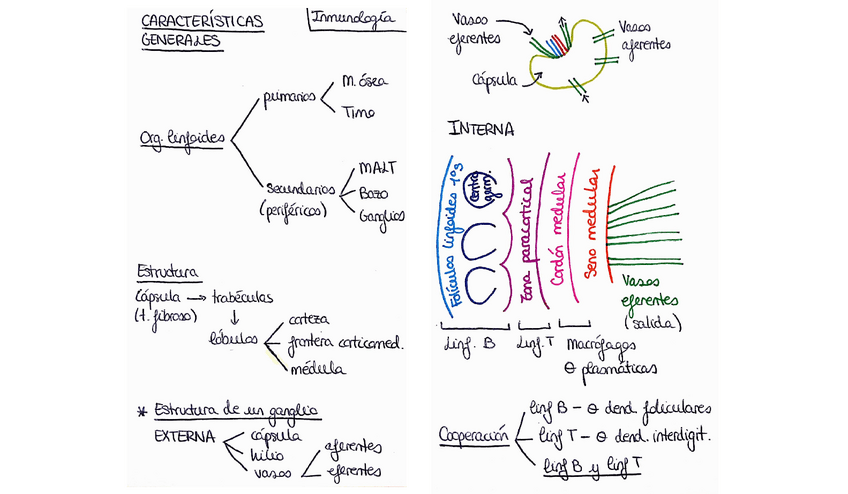 CARACTERÍSTICAS
GENERALES
Inmunología
Org. linfoides
primarios
M. ósea
Timo
secundarios
(periféricos)
MALT
Bazo
Ganglios
Estructura
Cápsula → trabéculas
(t. fibroso)
↓
lóbulos
corteza
frontera corticomed.
médula
* Estructura de un ganglio
EXTERNA
cápsula
hilio
vasos
aferentes
eferentes
Vasos
eferentes
Vasos
aferentes
Cápsula
INTERNA
Folículos linfoides 1os
Centro
germ.
Zona paracortical
Cordón medular
Seno medular
Vasos
eferentes
(salida)
Linf. B
Linf. T
macrófagos
θ plasmáticas
Cooperación
linf B - θ dend. foliculares
linf T - θ dend. interdigit.
linf B y linf T